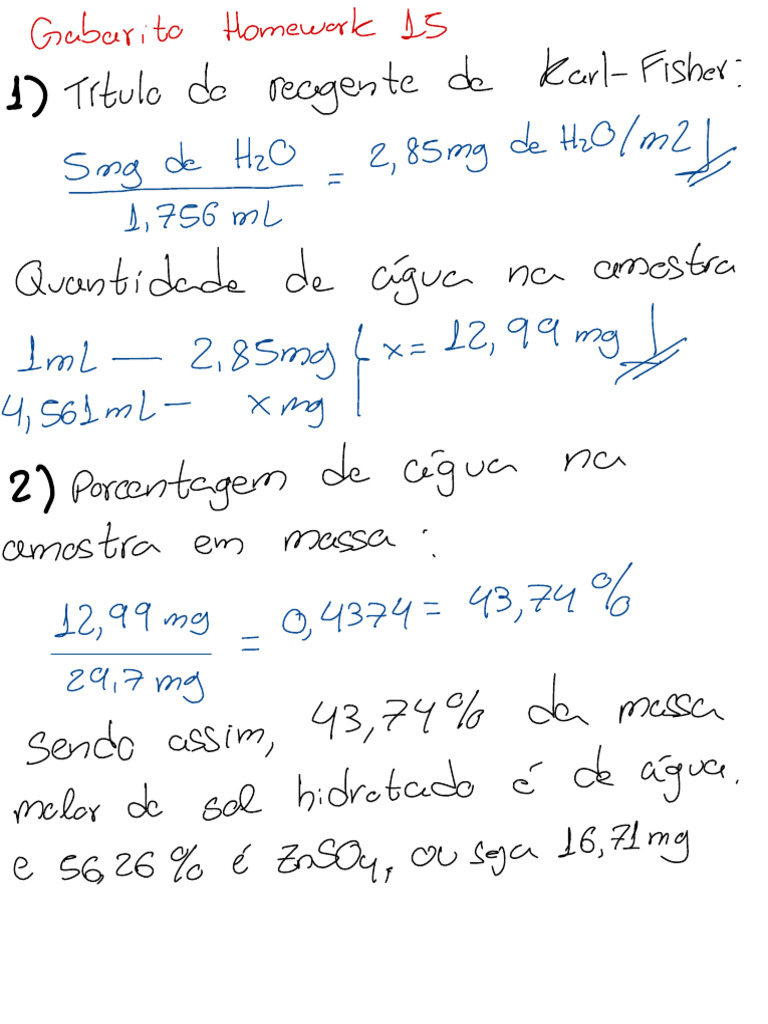 Gabarito Homework 15
1) Título do reagente de Karl-Fisher:
5mg de H2O / 1,756 mL = 2,85mg de H2O/mL
Quantidade de água na amostra
1mL — 2,85mg x= 12,99 mg
4,561mL — x mg
2) Porcentagem de água na
amostra em massa:
12,99 mg / 29,7 mg = 0,4374 = 43,74%
Sendo assim, 43,74% da massa
molar do sal hidratado é de água.
e 56,26% é ZnSO4, ou seja 16,71mg